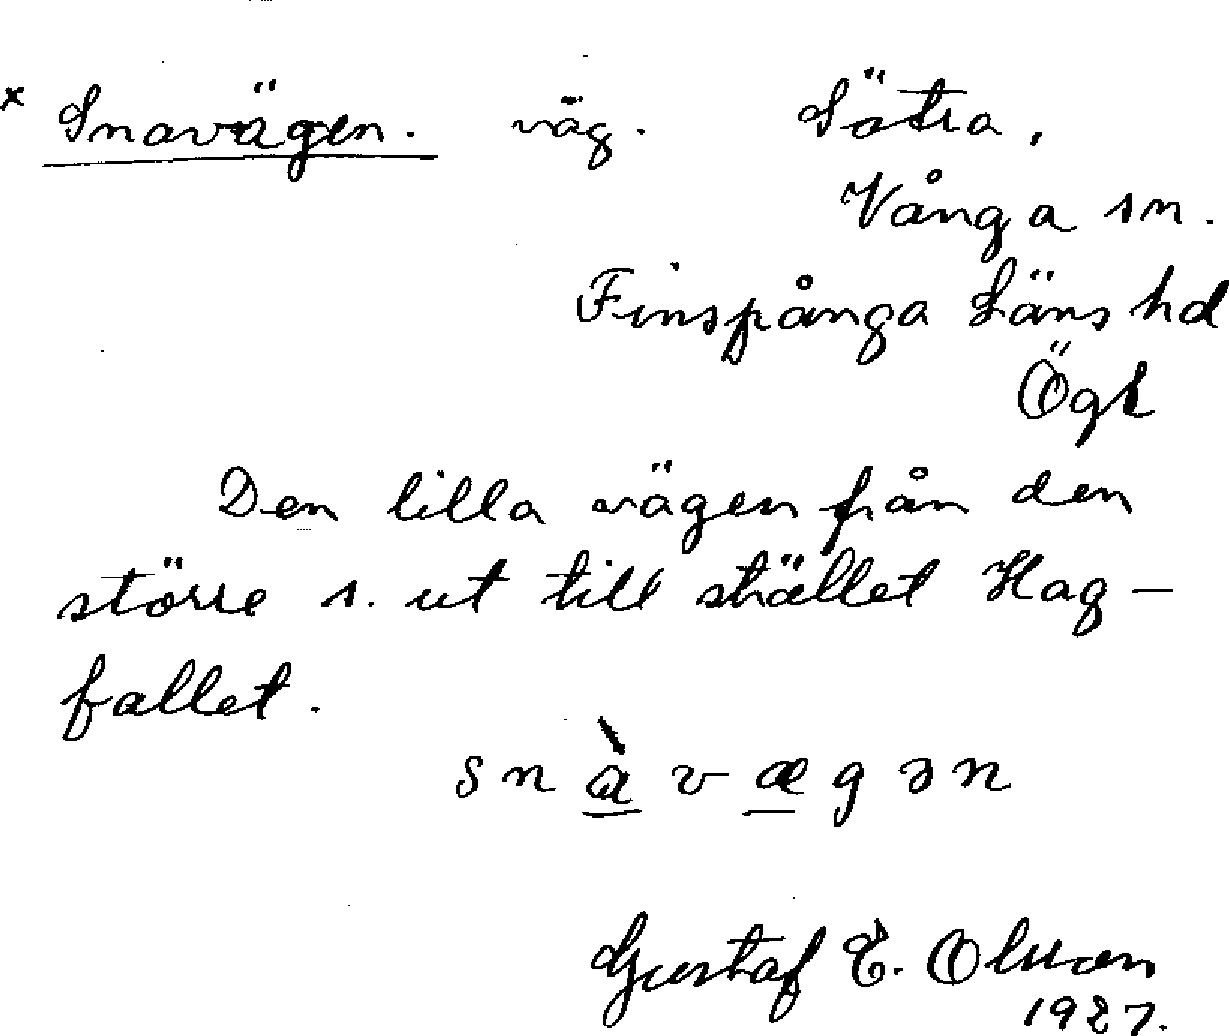 × Snavägen. väg. Sätra,
Vånga sn.
Finspånga Läns hd
Ögl
Den lilla vägen från den
större s. ut till stället Hag-
fallet.
s n à v æ g ə n
Gustaf E. Olsson
1927.